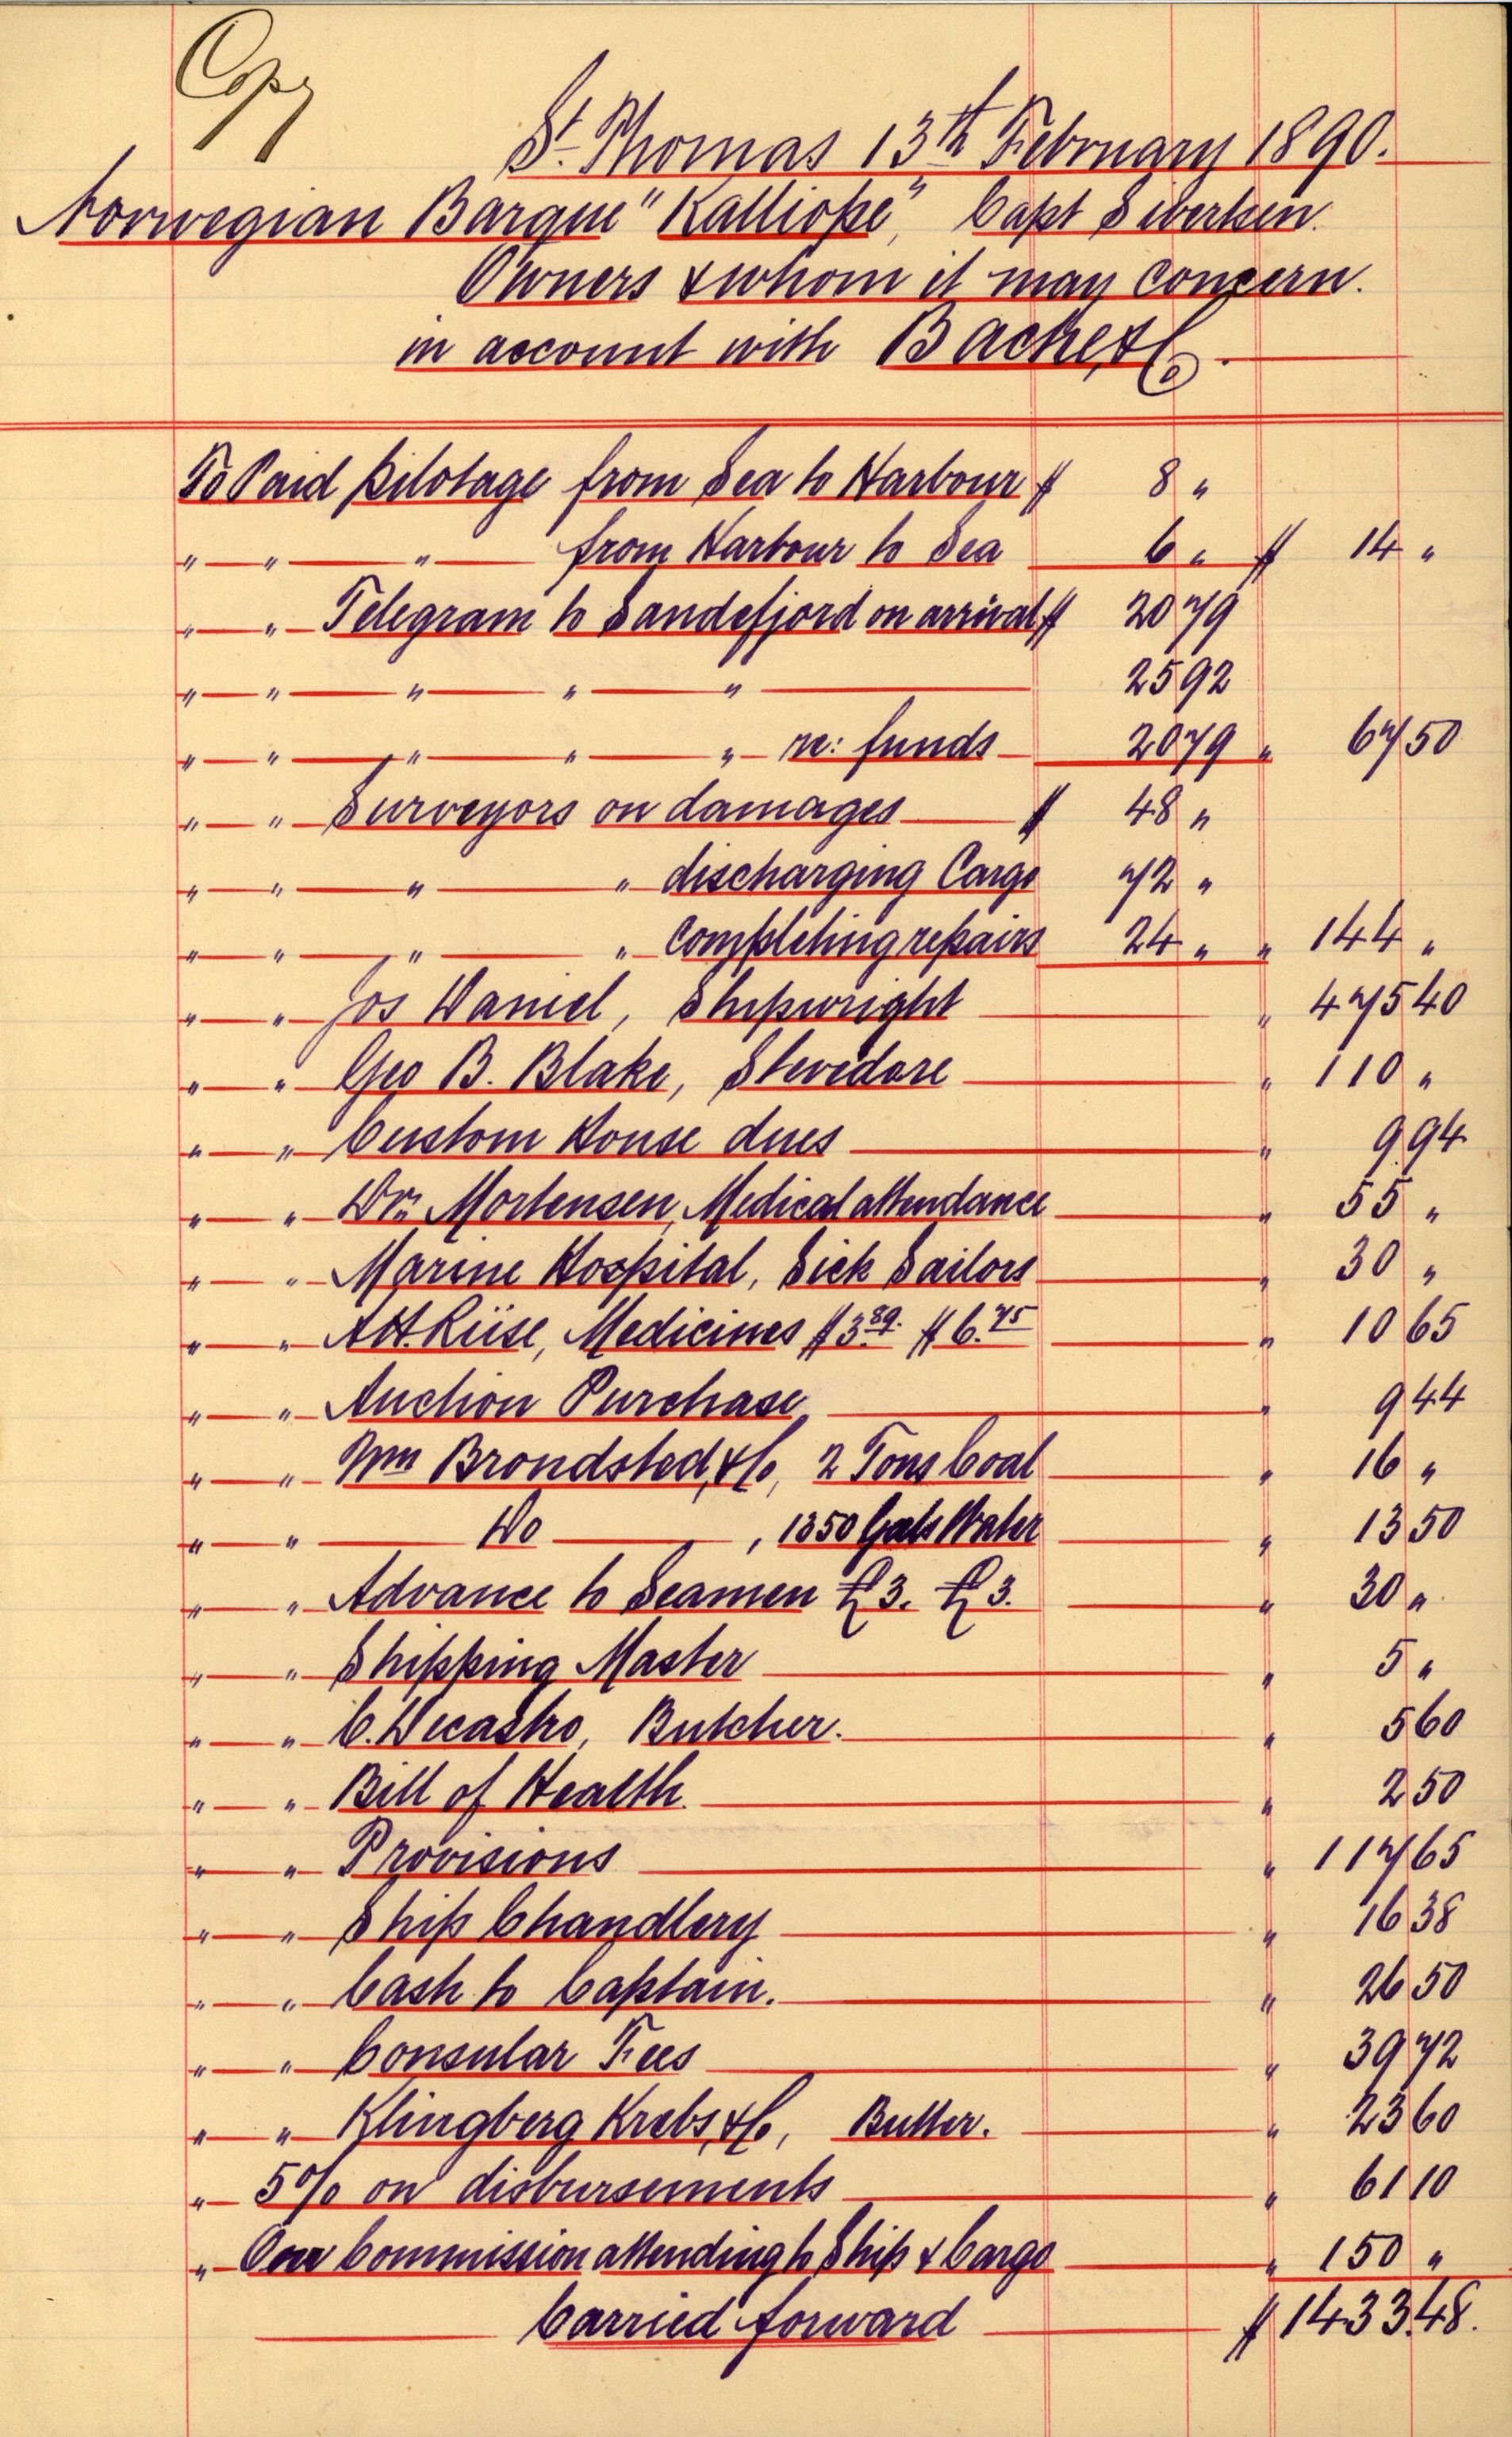 Copy
St. Thomas 13th February 1890.
Norwegian Barque "Kalliope", Capt Sivertsen.
Owners & whom it may concern.
in account with Bache, & Co.
To Paid pilotage from Sea to Harbour $ 8 "
" " " from Harbour to Sea 6 " $ 14 "
" " Telegram to Sandefjord on arrival $ 20 79
" " " " " 25 92
" " " " " re: funds 20 79 " 67 50
" " Surveyors on damages $ 48 "
" " " " discharging Cargo 72 "
" " " " completing repairs 24 " " 144 "
" " Jos Daniel, Shipwright " 475 40
" " Geo B. Blake, Stevedore " 110 "
" " Custom House dues " 9 94
" " Dr. Mortensen, Medical attendance " 55 "
" " Marine Hospital, Sick Sailors " 30 "
" " A.H. Riise, Medicines $3.89. $6.75 " 10 65
" " Auction Purchase " 9 44
" " Wm Brondsted, & Co, 2 Tons Coal " 16 "
" " Do , 1350 Gals Water " 13 50
" " Advance to Seamen £3. £3. " 30 "
" " Shipping Master " 5 "
" " C. Decastro, Butcher. " 5 60
" " Bill of Health. " 2 50
" " Provisions " 117 65
" " Ship Chandlery " 16 38
" " Cash to Captain. " 26 50
" " Consular Fees " 39 72
" " Klingberg Krebs, & Co, Butter. " 23 60
" 5% on disbursements " 61 10
" Our Commission attending to Ship & Cargo " 150 "
Carried forward $ 1433.48.